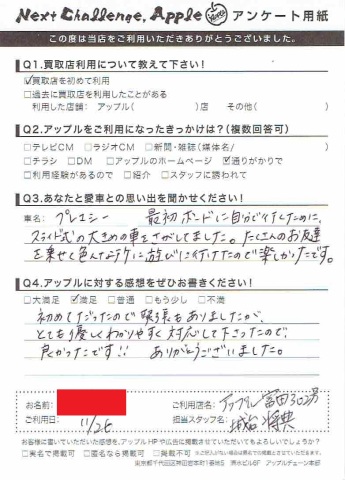 Next Challenge, Apple アンケート用紙
この度は当店をご利用いただきありがとうございました。
Q1.買取店利用について教えて下さい!
☑買取店を初めて利用
□過去に買取店を利用したことがある
利用した店舗: アップル( )店 その他( )
Q2.アップルをご利用になったきっかけは?(複数回答可)
□テレビCM □ラジオCM □新聞・雑誌(媒体名/ )
□チラシ □DM □アップルのホームページ ☑通りがかりで
□利用経験があるので □紹介 □スタッフに誘われて
Q3.あなたと愛車との思い出を聞かせください!
車名: プレマシー 最初ボードに自分で行くために、
スライド式の大きめの車をさがしてました。たくさんのお友達
を乗せて色んな所に遊びに行けたので楽しかったです。
Q4.アップルに対する感想をぜひお書きください!
□大満足 ☑満足 □普通 □もう少し □不満
初めてだったので緊張もありましたが、
とても優しくわかりやすく対応して下さったので、
良かったです!! ありがとうございました。
お名前: ご利用店名: アップル 富田302号
ご利用日: 11/26 担当スタッフ名:
お客様に書いていただいた感想を、アップルHPや広告に掲載させていただいてもよろしいでしょうか?
□実名で掲載可 □匿名なら掲載可 □掲載不可
東京都千代田区神田宮本町1番地5 清水ビル6F アップルチェーン本部